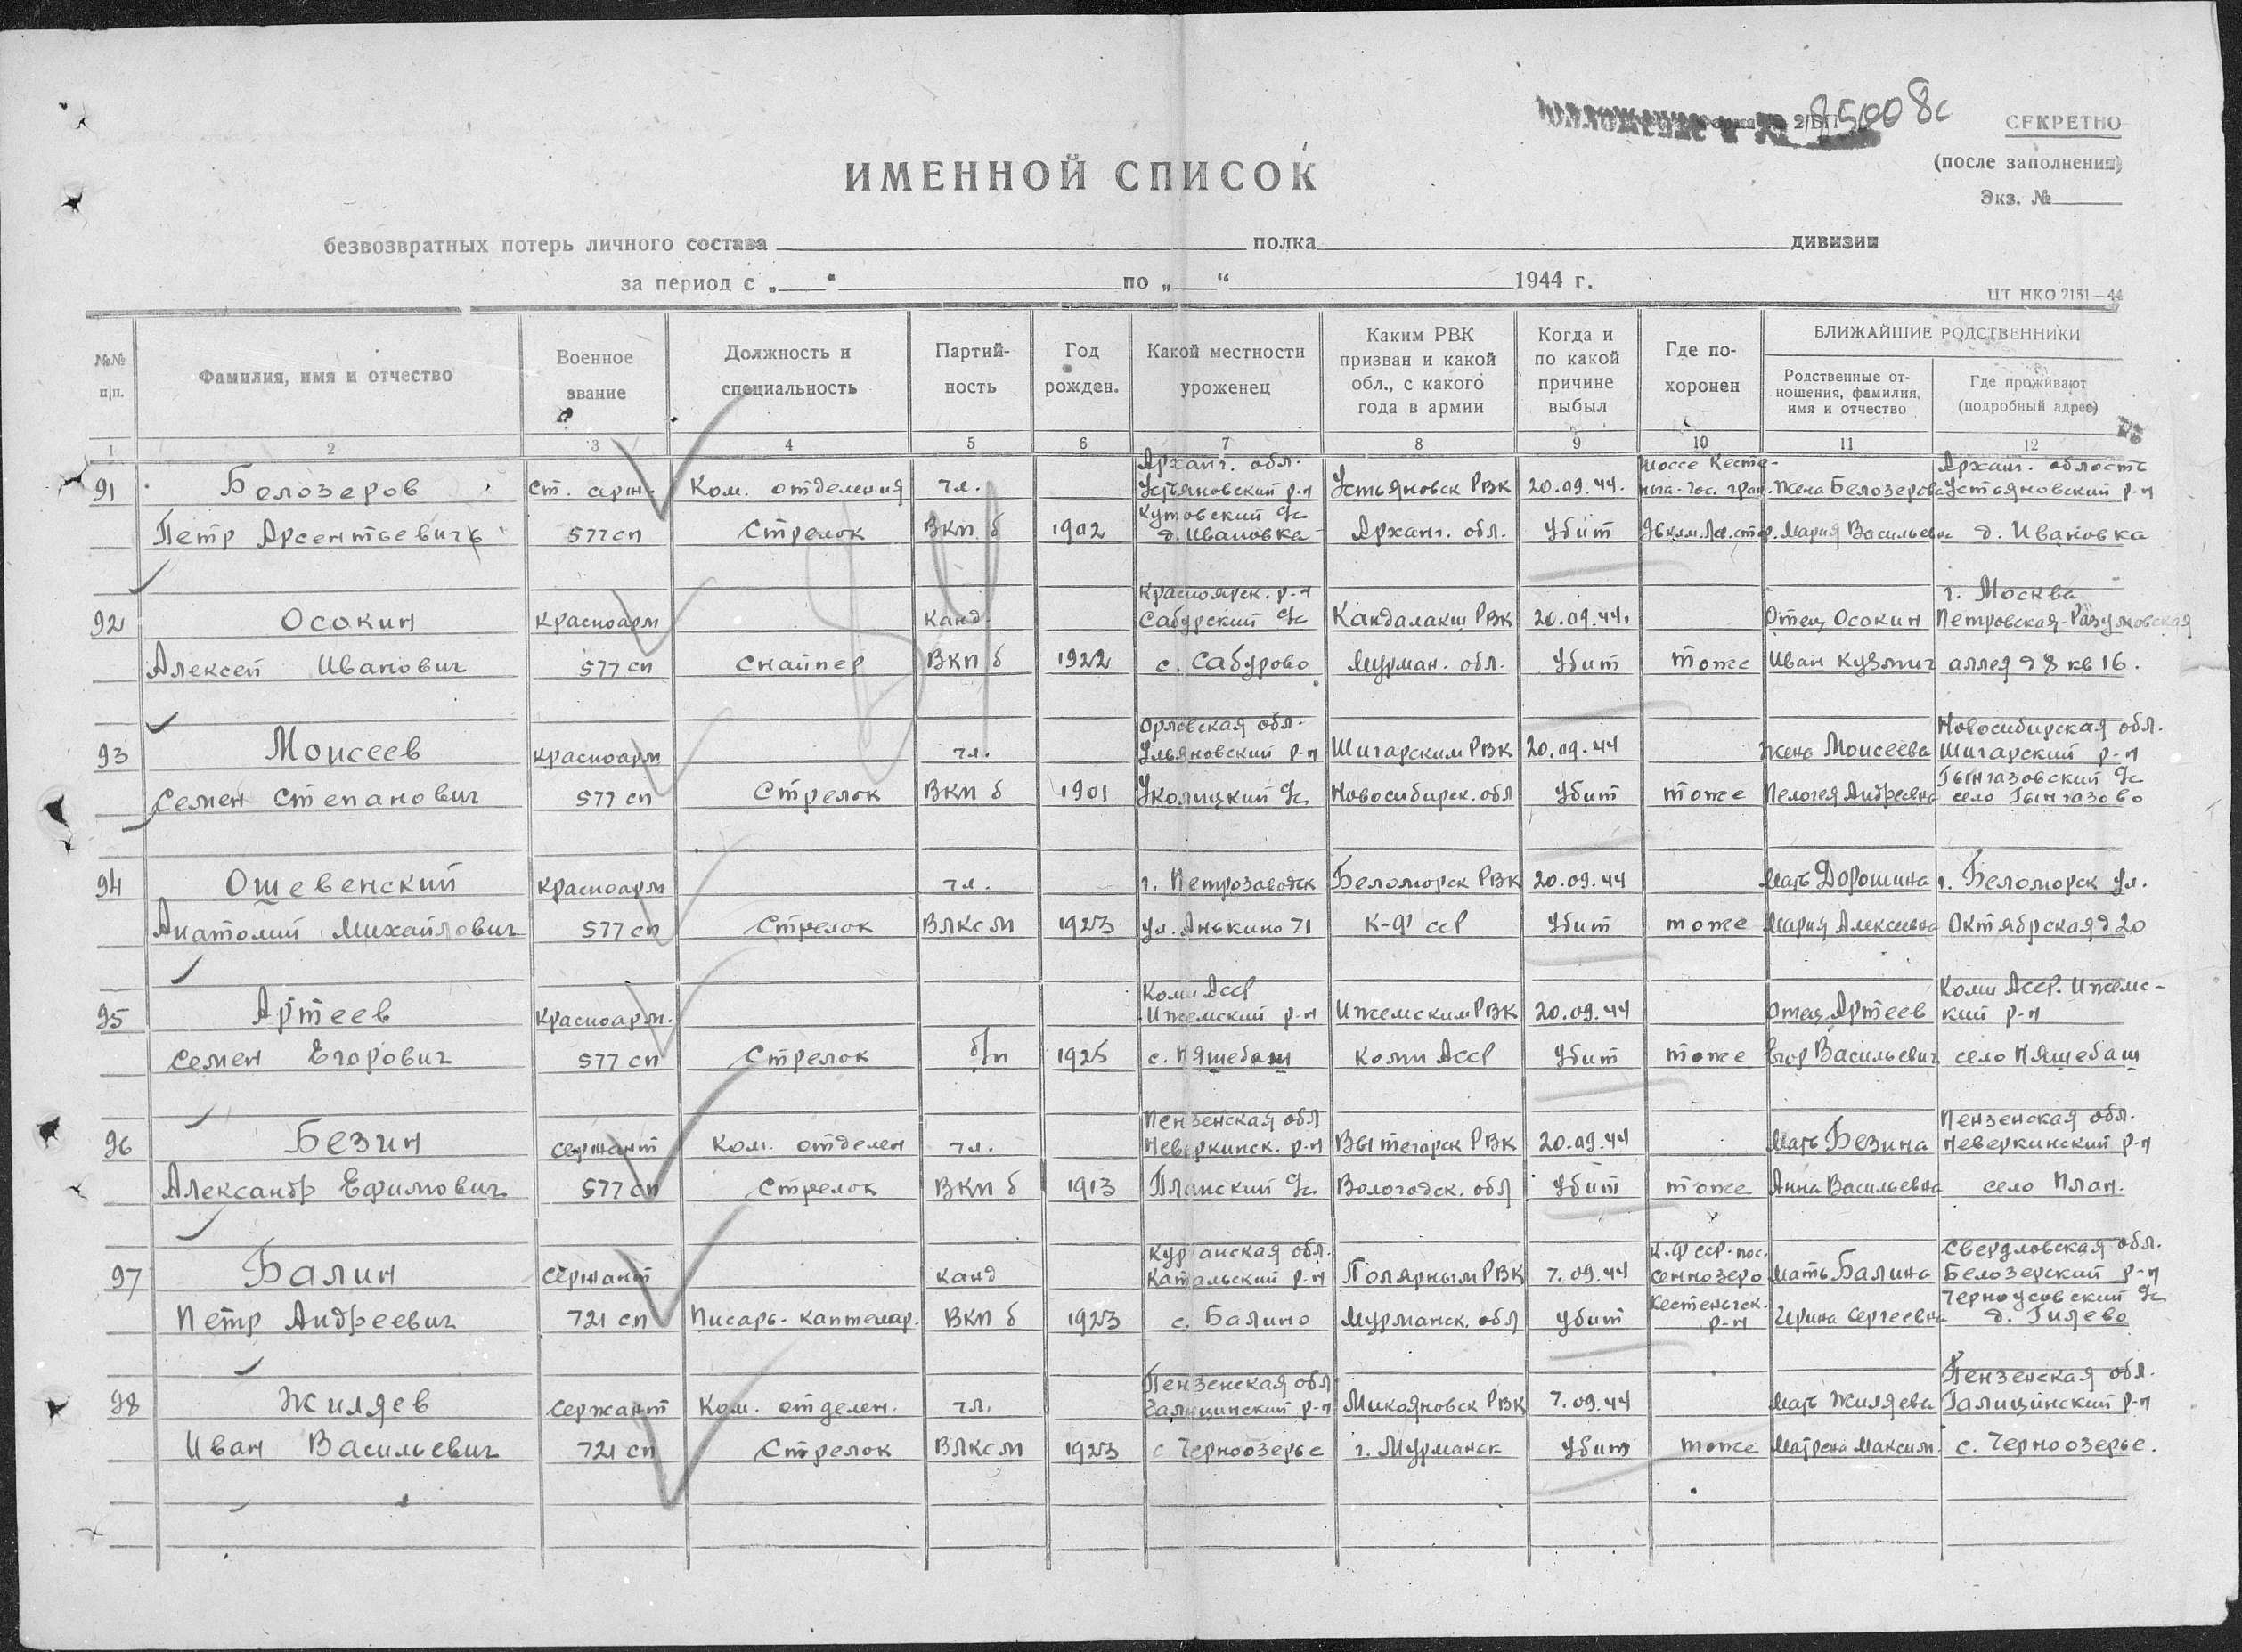 Форма 2/БП
85008с
СЕКРЕТНО
(после заполнения)
Экз. №
ИМЕННОЙ СПИСОК
безвозвратных потерь личного состава полка дивизии
за период с „ “ по „ “ 1944 г.
ЦТ НКО 2151—44
№№ п/п. Фамилия, имя и отчество Военное звание Должность и специальность Партий-ность Год рожден. Какой местности уроженец Каким РВК призван и какой обл., с какого года в армии Когда и по какой причине выбыл Где по-хоронен БЛИЖАЙШИЕ РОДСТВЕННИКИ
Родственные от-ношения, фамилия, имя и отчество Где проживают (подробный адрес)
1 2 3 4 5 6 7 8 9 10 11 12
Арханг. обл. шоссе Кесте- Арханг. область
91 Белозеров Ст. серж. Ком. отделения чл. Устьяновский р-н Устьяновск РВК 20.09.44. ньга-гос. гран. Жена Белозерова Устьяновский р-н
Кутовский с/с
Петр Арсентьевич 577 сп Стрелок ВКП б 1902 д. Ивановка Арханг. обл. Убит Мария Васильевна д. Ивановка
Красноярск. р-н г. Москва
92 Осокин Красноарм канд. Сабурский с/с Кандалакш РВК 20.09.44. Отец Осокин Петровская-Разумовская
Алексей Иванович 577 сп Снайпер ВКП б 1922 с. Сабурово Мурман. обл. Убит тоже Иван Кузмич аллея д 8 кв 16.
Орловская обл. Новосибирская обл.
93 Моисеев Красноарм чл. Ульяновский р-н Шигарским РВК 20.09.44 Жена Моисеева Шигарский р-н
Гынгазовский с/с
Семен Степанович 577 сп Стрелок ВКП б 1901 Уколицкий с/с Новосибирск. обл Убит тоже Пелогея Андреевна село Гынгазово
94 Ошевенский Красноарм чл. г. Петрозаводск Беломорск РВК 20.09.44 Мать Дорошина г. Беломорск ул.
Анатолий Михайлович 577 сп Стрелок ВЛКСМ 1923 ул. Анькино 71 К-Ф ССР Убит тоже Мария Алексеевна Октябрская д 20
Коми АССР Коми АССР. Ижемс-
95 Артеев Красноарм. Ижемский р-н Ижемским РВК 20.09.44 Отец Артеев кий р-н
Семен Егорович 577 сп Стрелок б/п 1925 с. Няшебаш Коми АССР Убит тоже Егор Васильевич село Няшебаш
Пензенская обл Пензенская обл.
96 Безин сержант Ком. отделен чл. Неверкинск. р-н Вытегорск РВК 20.09.44 Мать Безина Неверкинский р-н
Александр Ефимович 577 сп Стрелок ВКП б 1913 Планский с/с Вологодск. обл Убит тоже Анна Васильевна село План.
Курганская обл. К-Ф ССР. пос. Свердловская обл.
97 Балин Сержант канд Катальский р-н Полярным РВК 7.09.44 Сеннозеро Мать Балина Белозерский р-н
Кестеньгск. Черноусовский с/с
Петр Андреевич 721 сп Писарь-каптенар. ВКП б 1923 с. Балино Мурманск. обл Убит р-н Ирина Сергеевна д. Гиляево
Пензенская обл Пензенская обл.
98 Жиляев Сержант Ком. отделен. чл. Галицинский р-н Микояновск РВК 7.09.44 Мать Жиляева Галицинский р-н
Иван Васильевич 721 сп Стрелок ВЛКСМ 1923 с Черноозерье г. Мурманск Убит тоже Матрена Максим. с. Черноозерье.